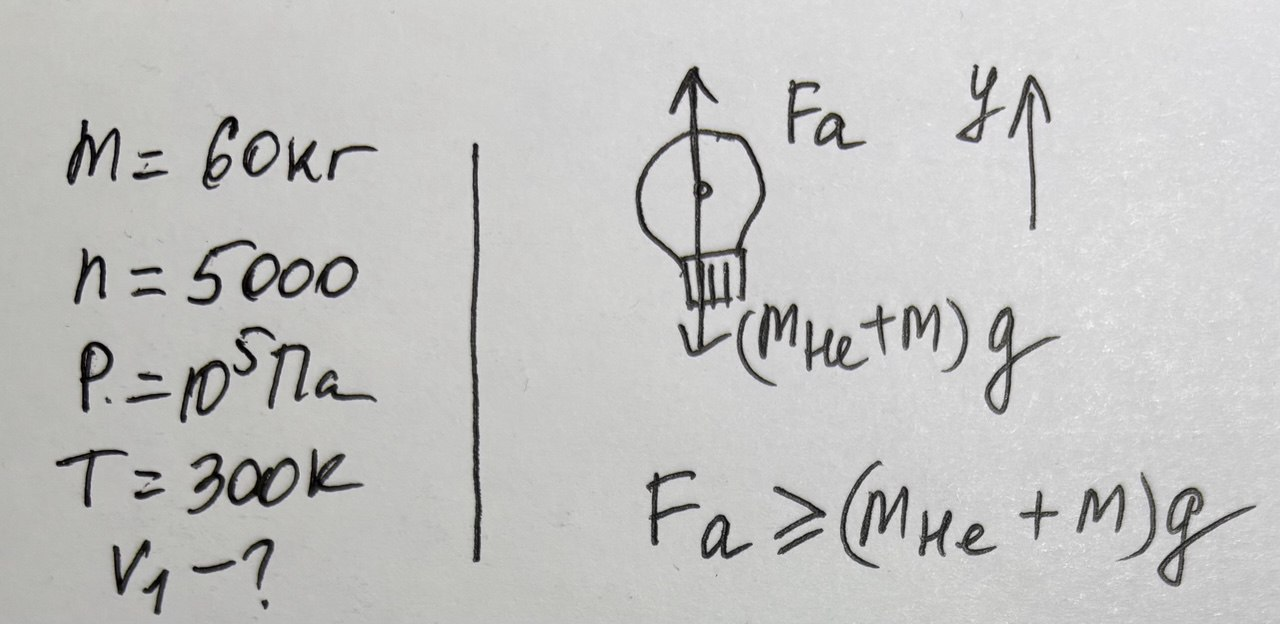 m = 60кг
n = 5000
P = 10⁵Па
T = 300K
V₁ – ?
Fa
y
(mHe + m) g
Fa ⩾ (mHe + m) g